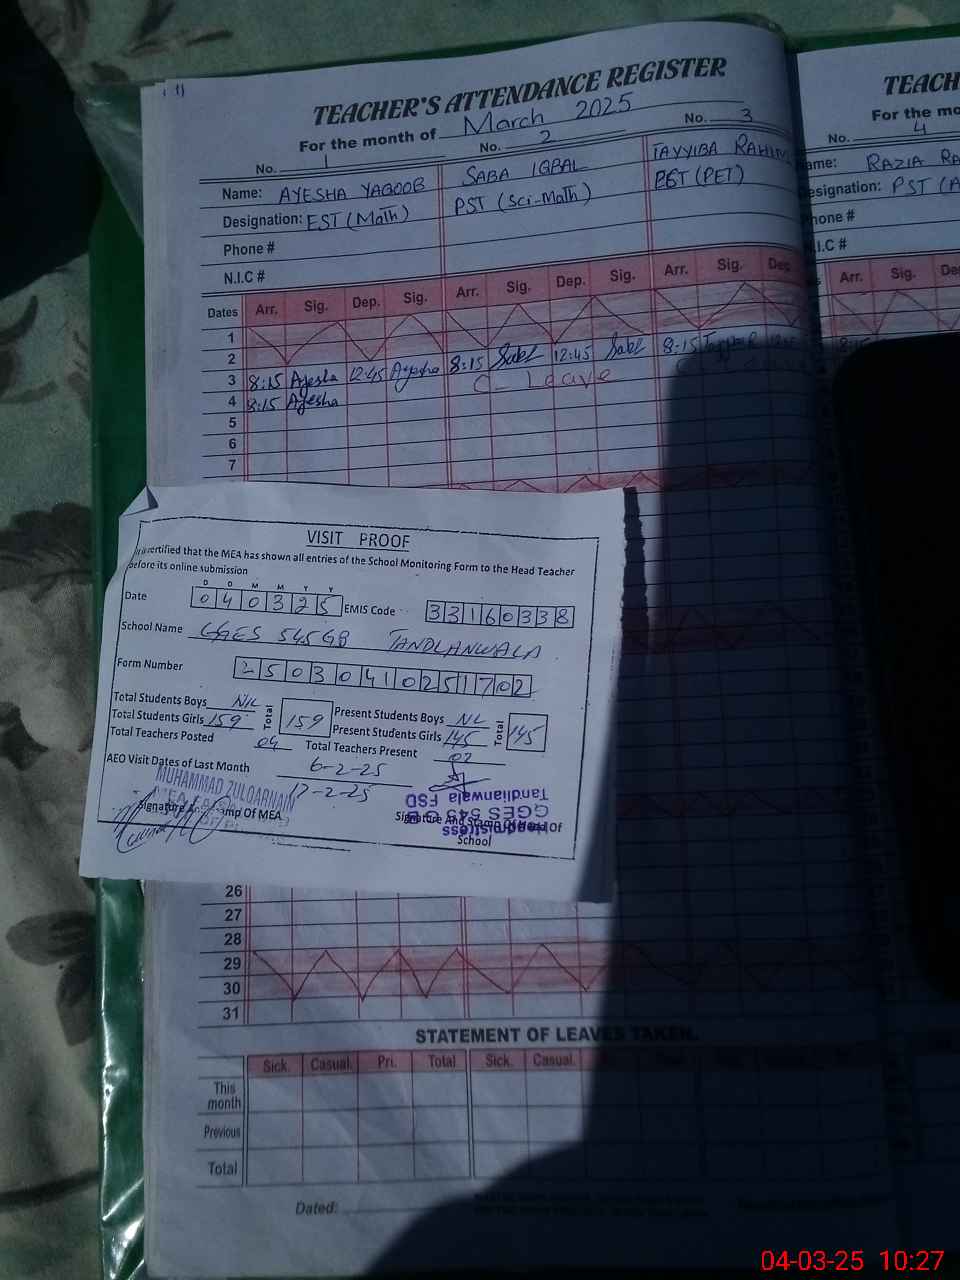 TEACHER'S ATTENDANCE REGISTER
For the month of March 2025
No. 1 No. 2 No. 3
Name: AYESHA YAQOOB SABA IQBAL TAYYIBA
Designation: EST (Math) PST (Sci-Math) PST (PET)
Phone #
N.I.C #
Dates Arr. Sig. Dep. Sig. Arr. Sig. Dep. Sig. Arr. Sig. Dep.
1
2
3 8:15 Ayesha 12:45 Ayesha 8:15 12:45 8:15
4 8:15 Ayesha C-Leave
5
6
7
VISIT PROOF
It is certified that the MEA has shown all entries of the School Monitoring Form to the Head Teacher
before its online submission
D D M M Y Y
Date 040325 EMIS Code 33160338
School Name GGES 545 GB TANDLANWALA
Form Number 25030410251702
Total Students Boys NIL Total 159 Present Students Boys NIL Total 145
Total Students Girls 159 Present Students Girls 145
Total Teachers Posted 04 Total Teachers Present 02
AEO Visit Dates of Last Month 6-2-25
17-2-25
MUHAMMAD ZULQARNAIN
Signature And Stamp Of MEA
Signature And Stamp Of Head Of
School
Headmistress
GGES 545
Tandlianwala FSD
26
27
28
29
30
31
STATEMENT OF LEAVES TAKEN.
Sick. Casual. Pri. Total Sick. Casual.
This
month
Previous
Total
Dated:
TEACH
For the mo
No. 4
ame: RAZIA RA
esignation: PST
hone #
N.I.C #
Arr. Sig. De
04-03-25 10:27